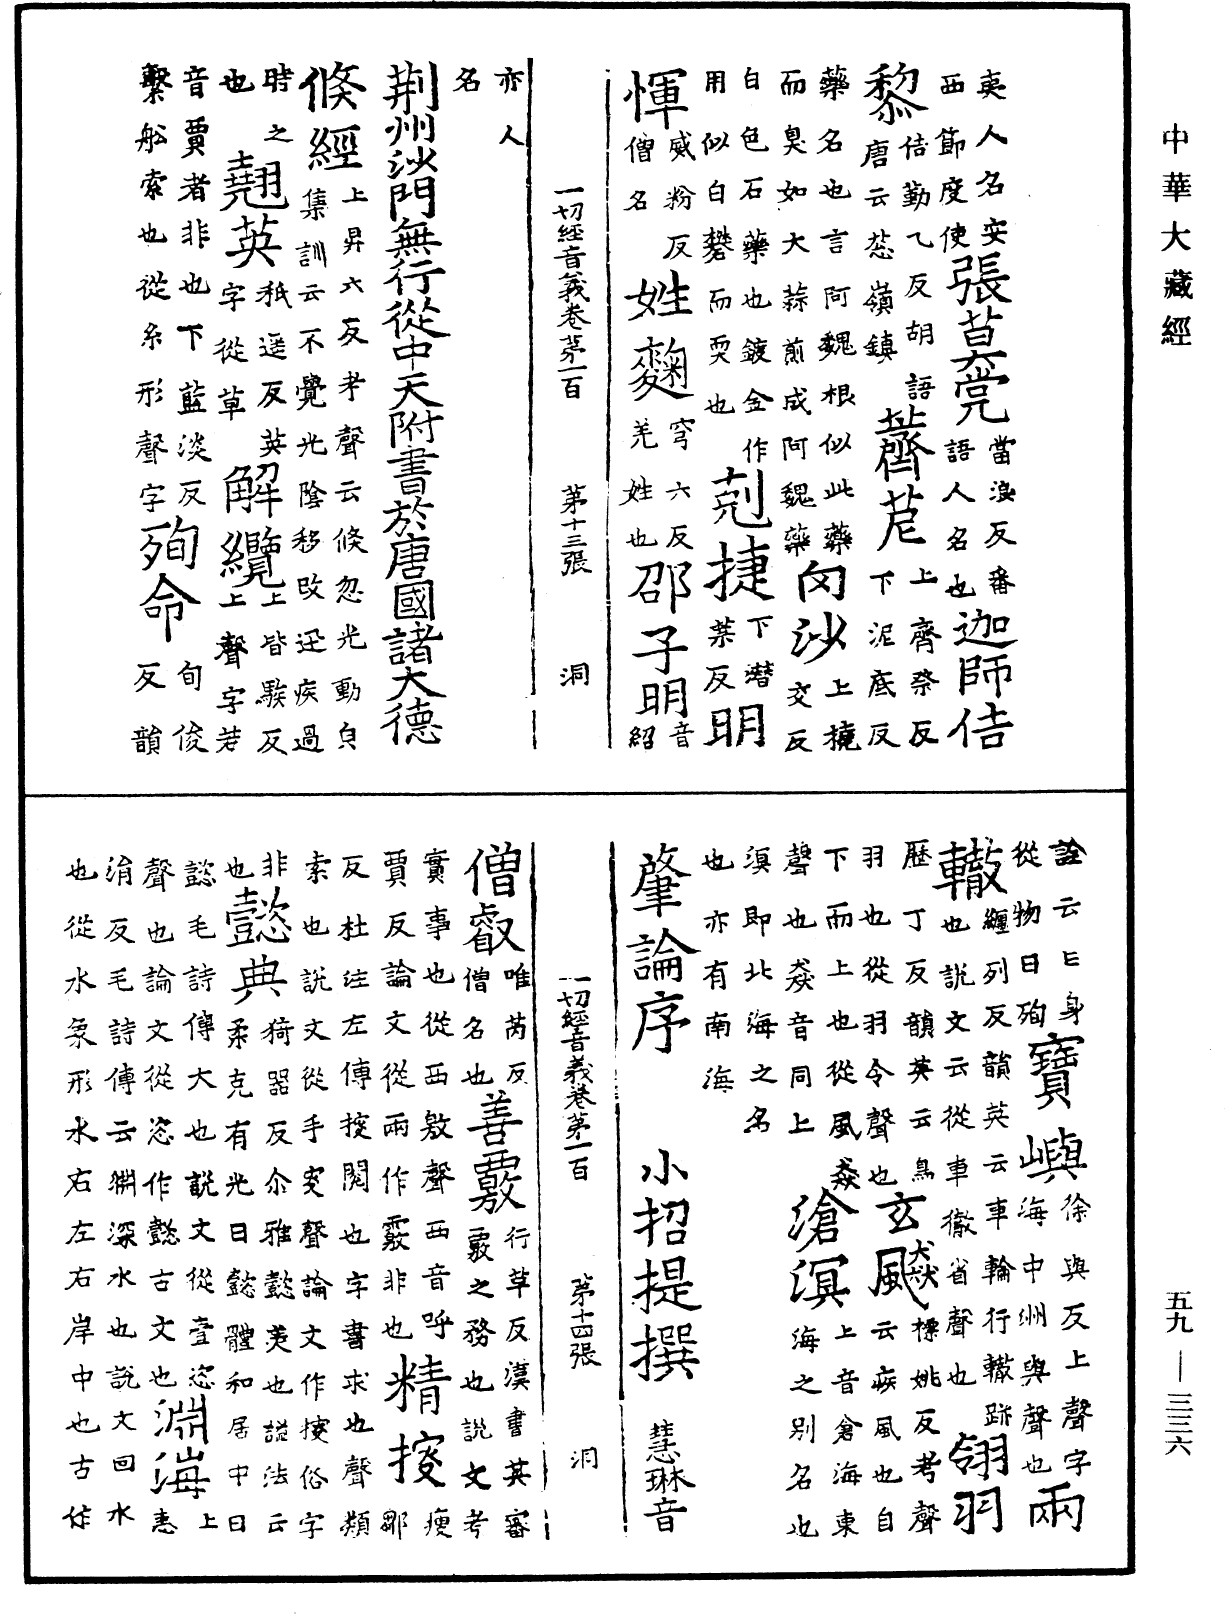 中華大藏經
夷人名安西節度使張莒莌當浪反番語人名也迦師佶
黎佶勤乙反胡語唐云葱嶺鎮薺苨上齊祭反下泥底反
藥名也言阿魏根似此藥而臭如大蒜煎成阿魏藥沙上撓交反
白色石藥也鍍金作用似白礬而耎也剋捷下潛葉反明
惲威粉反僧名姓麴穹六反羌姓也邵子明音紹
一切經音義卷第一百 第十三張 洞
亦人名
荆州沙門無行從中天附書於唐國諸大德
倏經上昇六反考聲云倏忽光動皃集訓云不覺光陰移改迅疾過
時之也翹英祇遥反英字從草解纜上皆駭反上聲字若
音賈者非也下藍淡反繫舩索也從糸形聲字殉命旬俊反韻
詮云亡身從物曰殉寶嶼徐與反上聲字海中州與聲也兩
轍纏列反韻英云車輪行轍跡也說文云從車徹省聲也翎羽
歷丁反韻英云鳥羽也從羽令聲也玄飇摽姚反考聲云疾風也自
下而上也從風猋聲也猋音同上滄溟上音倉海東海之別名也
溟即北海之名也亦有南海
肇論序 小招提撰 慧琳音
一切經音義卷第一百 第十四張 洞
僧叡唯芮反僧名也善覈行革反漢書其審覈之務也說文考
實事也從西敫聲西音呼賈反論文從雨作霰非也精搜鄒瘦
反杜注左傳搜閱也字書求也聲類索也說文從手叜聲論文作搜俗字
非也懿典猗器反尒雅懿美也謚法云柔克有光曰懿體和居中曰
懿毛詩傳大也說文從壹恣聲也論文從恣作懿古文也淵海上恚
涓反毛詩傳云淵深水也說文回水也從水象形水右左右岸中也古作
五九—三三六